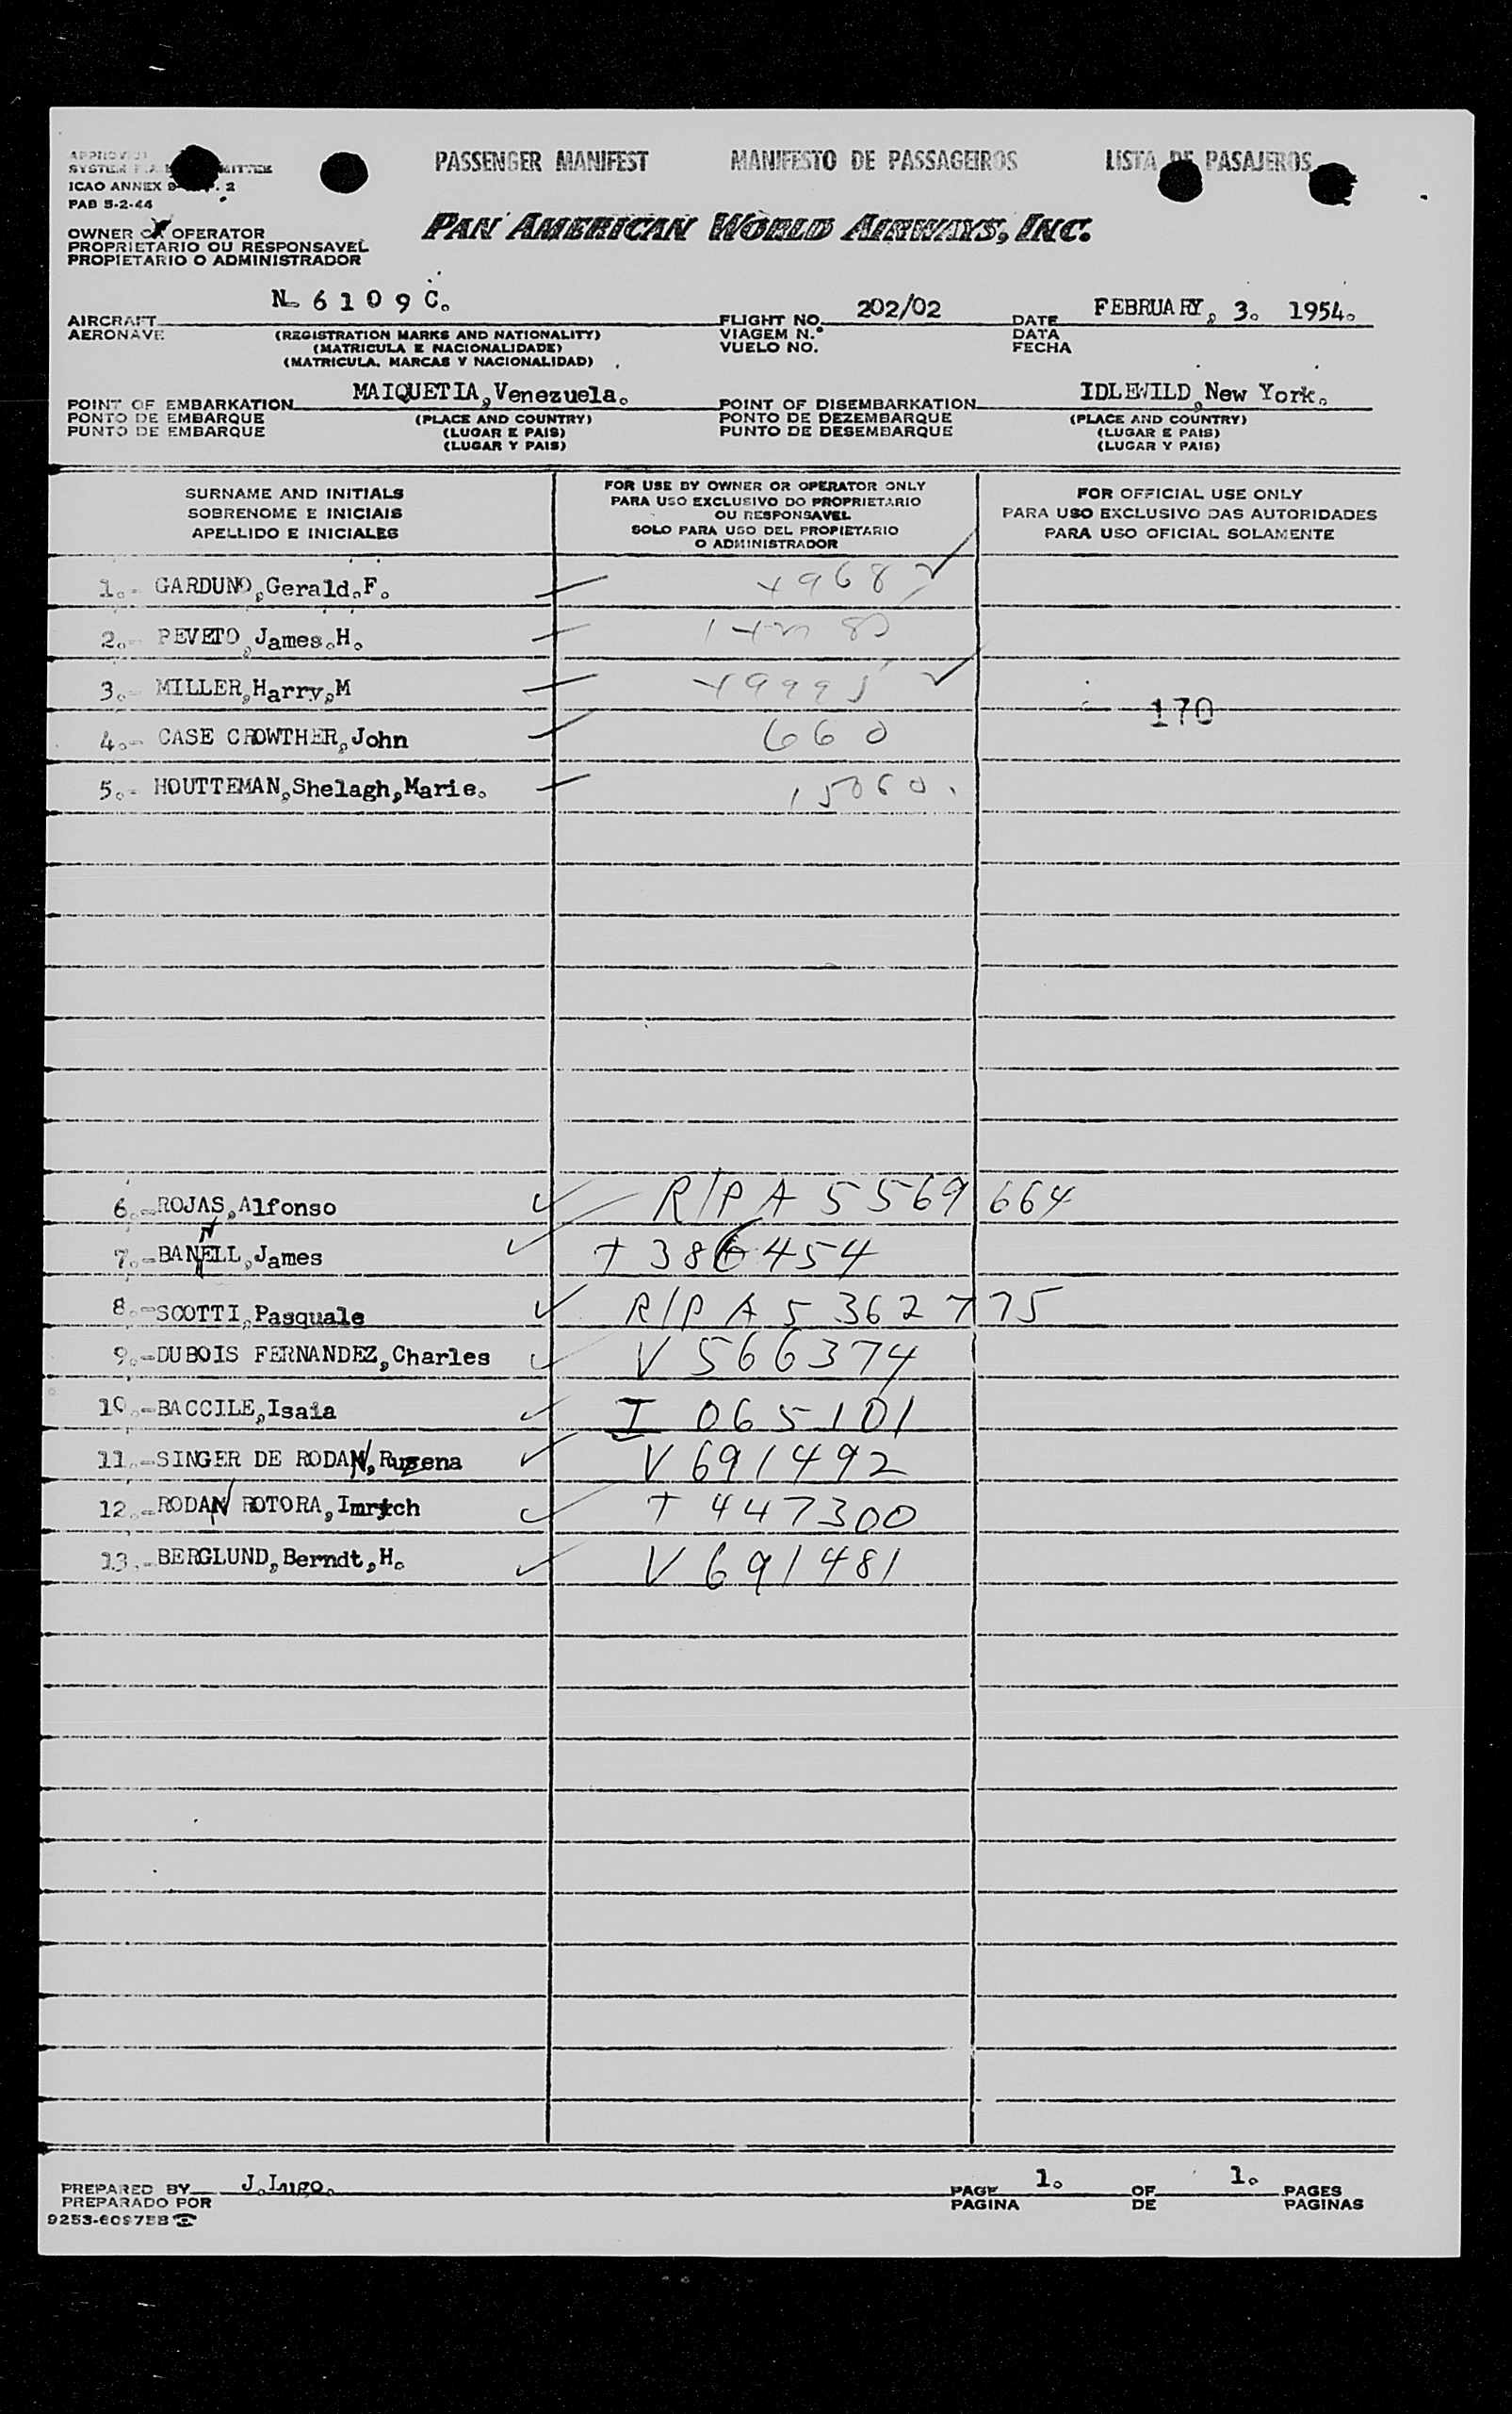 PASSENGER MANIFEST MANIFESTO DE PASSAGEIROS LISTA DE PASAJEROS
ICAO ANNEX 9
PAB 5-2-44
PAN AMERICAN WORLD AIRWAYS, INC.
OWNER OR OPERATOR
PROPRIETARIO OU RESPONSAVEL
PROPIETARIO O ADMINISTRADOR
AIRCRAFT N 6 1 0 9 C. FLIGHT NO. 202/02 DATE FEBRUARY, 3. 1954.
AERONAVE (REGISTRATION MARKS AND NATIONALITY) VIAGEM N.° DATA
(MATRICULA E NACIONALIDADE) VUELO NO. FECHA
(MATRICULA, MARCAS Y NACIONALIDAD)
POINT OF EMBARKATION MAIQUETIA, Venezuela. POINT OF DISEMBARKATION IDLEWILD, New York.
PONTO DE EMBARQUE (PLACE AND COUNTRY) PONTO DE DEZEMBARQUE (PLACE AND COUNTRY)
PUNTO DE EMBARQUE (LUGAR E PAIS) PUNTO DE DESEMBARQUE (LUGAR E PAIS)
(LUGAR Y PAIS) (LUGAR Y PAIS)
SURNAME AND INITIALS
SOBRENOME E INICIAIS
APELLIDO E INICIALES
FOR USE BY OWNER OR OPERATOR ONLY
PARA USO EXCLUSIVO DO PROPRIETARIO
OU RESPONSAVEL
SOLO PARA USO DEL PROPIETARIO
O ADMINISTRADOR
FOR OFFICIAL USE ONLY
PARA USO EXCLUSIVO DAS AUTORIDADES
PARA USO OFICIAL SOLAMENTE
1.- GARDUNO, Gerald.F.
2.- PEVETO, James.H.
3.- MILLER, Harry, M
170
4.- CASE CROWTHER, John 660
5.- HOUTTEMAN, Shelagh, Marie. 15060.
6.- ROJAS, Alfonso R/P A 5569664
7.- BANELL, James T 386454
8.- SCOTTI, Pasquale R/P A 5362775
9.- DUBOIS FERNANDEZ, Charles V 566374
10.- BACCILE, Isaia I 065101
11.- SINGER DE RODAN, Ruzena V 691492
12.- RODAN ROTORA, Imrich T 447300
13.- BERGLUND, Berndt, H. V 691481
PREPARED BY J. Lugo. PAGE 1. OF 1. PAGES
PREPARADO POR PAGINA DE PAGINAS